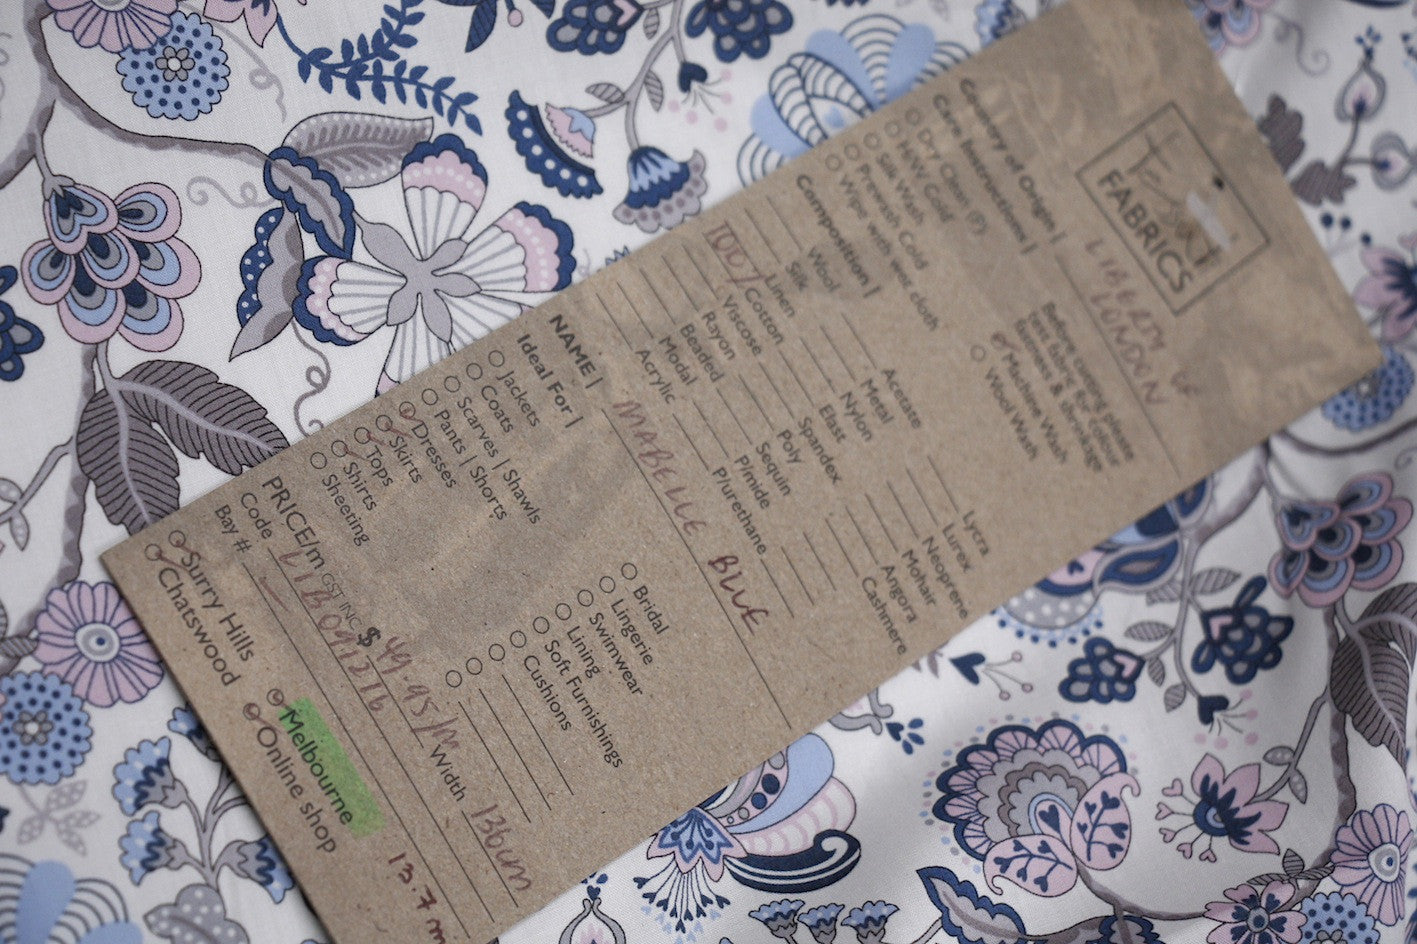 Tessuti
FABRICS
Country of Origin | LIBERTY OF
LONDON
Care Instructions |
Dry Clean (P)
H/W Cold
Silk Wash
Prewash Cold
Wipe with wet cloth
Before cutting please
test fabric for colour
fastness & shrinkage
Machine Wash
Wool Wash
Composition |
Wool
Silk
Linen
100% Cotton
Viscose
Rayon
Beaded
Modal
Acrylic
Acetate
Metal
Nylon
Elast
Spandex
Poly
Sequin
P/imide
P/urethane
Lycra
Lurex
Neoprene
Mohair
Angora
Cashmere
NAME | MABELLE BLUE
Ideal For |
Jackets
Coats
Scarves | Shawls
Pants | Shorts
Dresses
Skirts
Tops
Shirts
Sheeting
Bridal
Lingerie
Swimwear
Lining
Soft Furnishings
Cushions
PRICE/m GST INC $ 49.95/m Width 136cm
Code LIB091276
Bay # —
13.7m
Surry Hills
Chatswood
Melbourne
Online shop